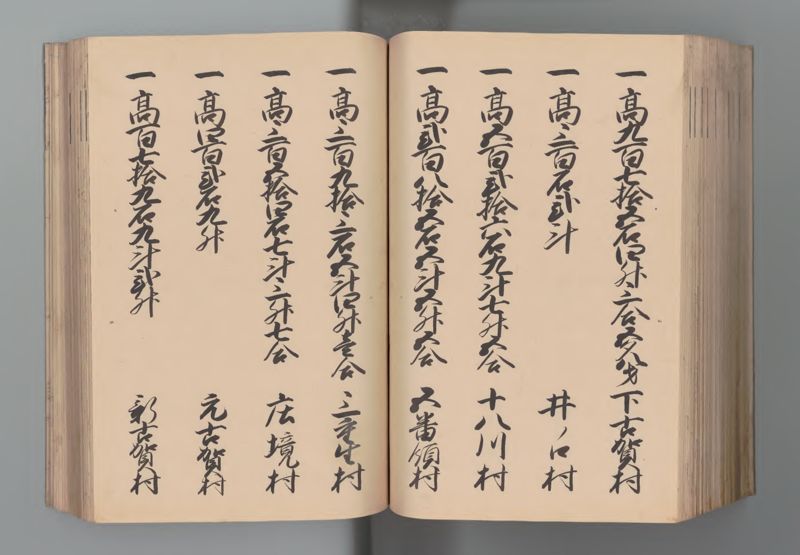 一高九百七拾五石四升三合五夕八才 下古賀村
一高三百石弐斗 井ノ口村
一高五百弐拾六石九斗七升五合 十八川村
一高弐百八拾五石五斗五升五合 五番領村
一高三百九拾三石五斗四升壱合 三重生村
一高三百五拾四石七斗三升七合 庄境村
一高四百弐石九升 元古賀村
一高百七拾九石九斗弐升 新古賀村